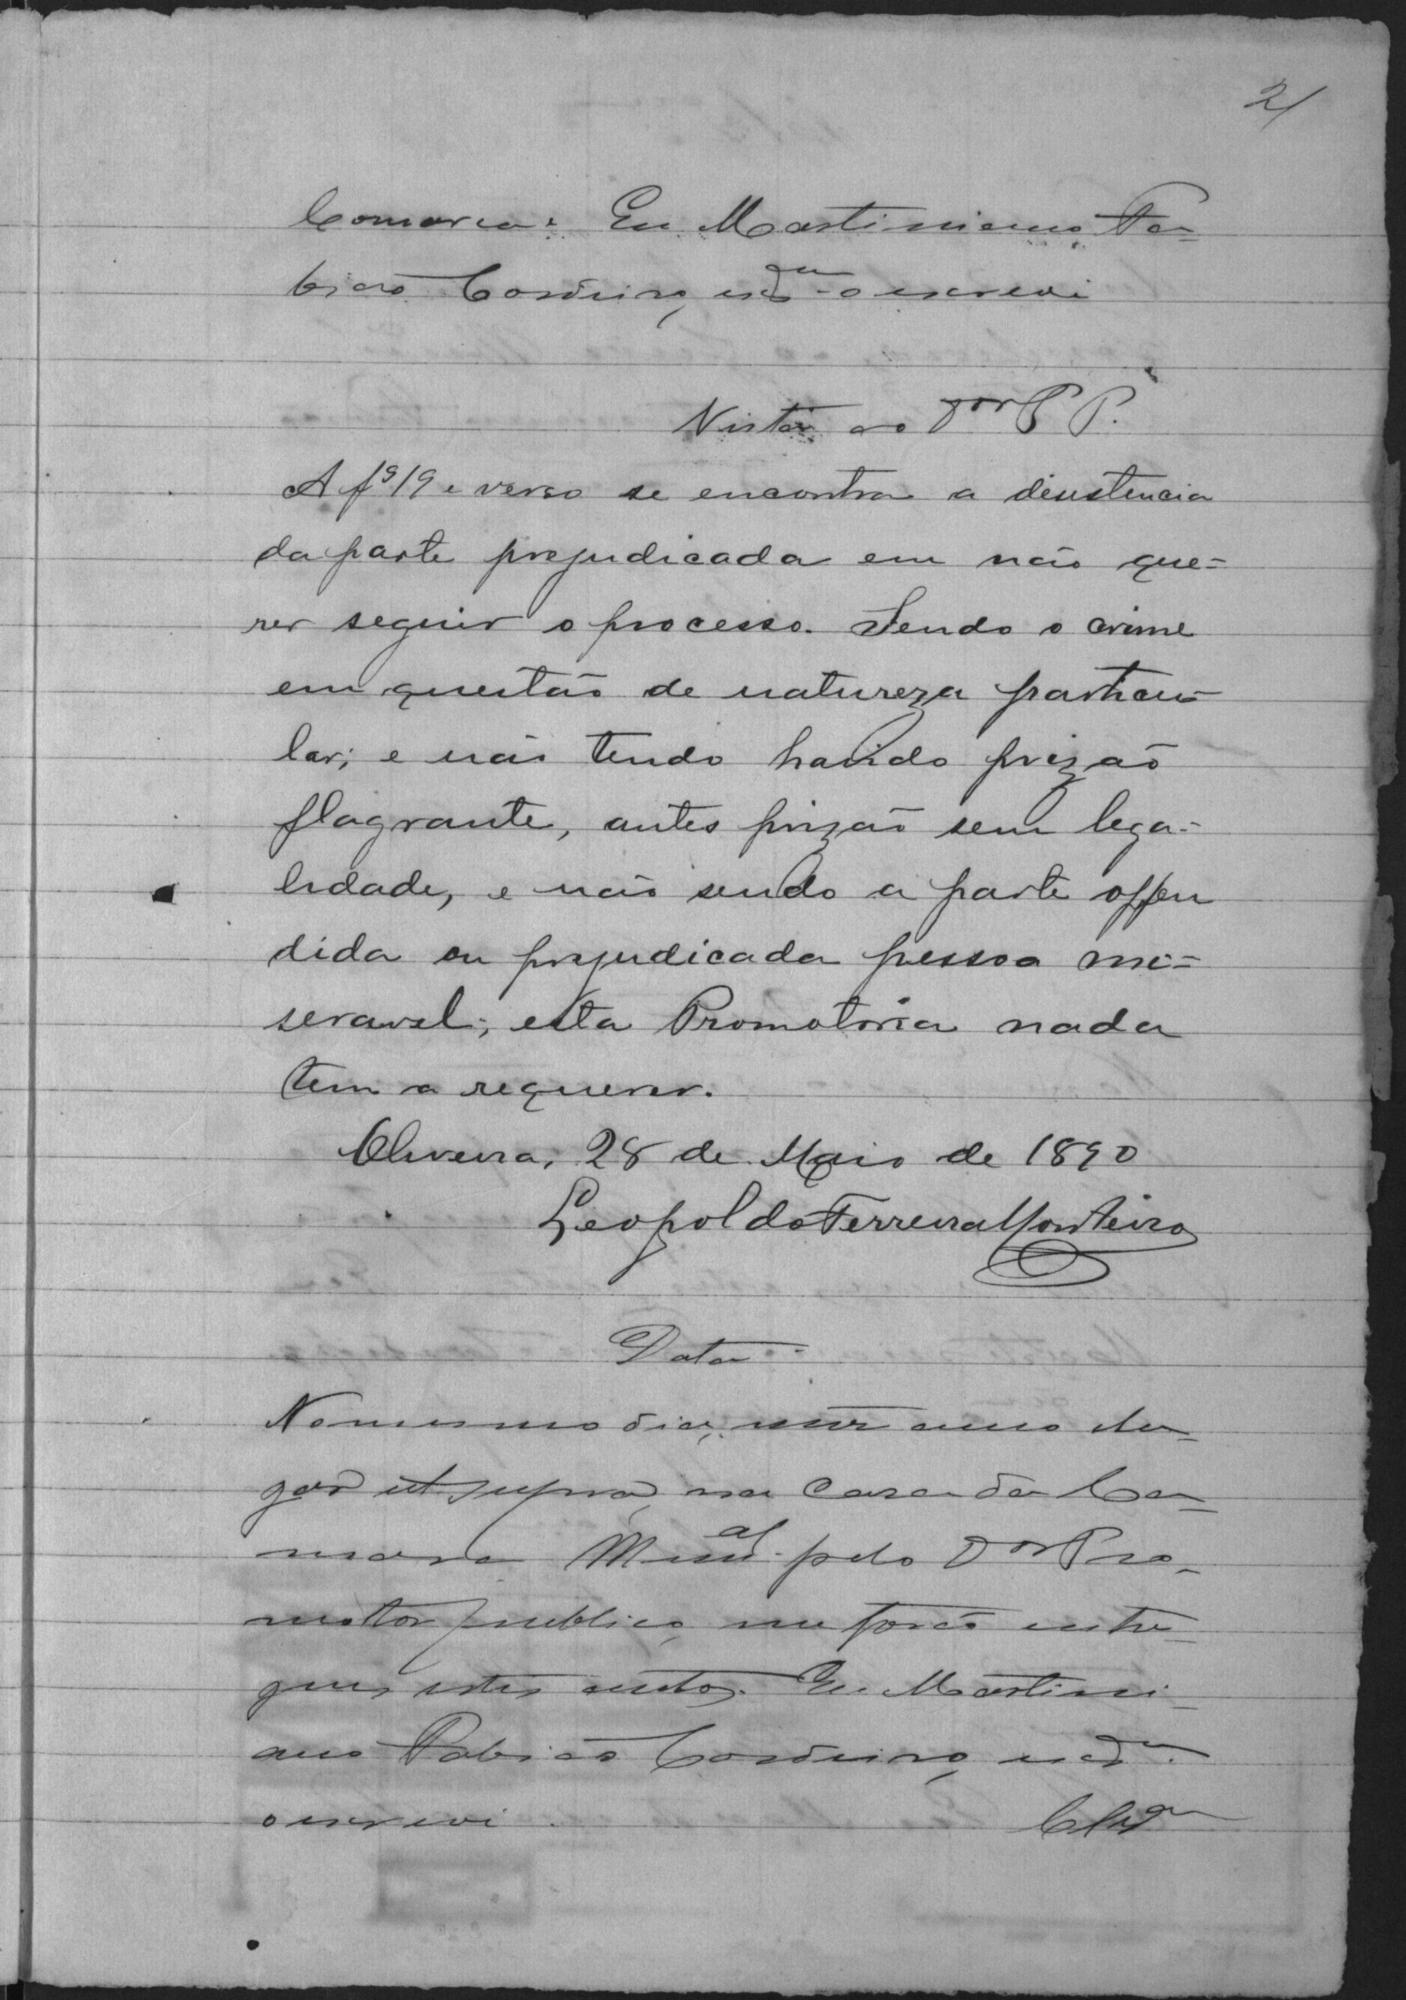 21
Comarca. Eu Martiniano Fa-
bião Cordeiro, escam o escrevi
Vista ao Dor P P.
A fs 19 e verso se encontra a desistencia
da parte prejudicada em não que=
rer seguir o processo. Sendo o crime
em questão de natureza particu-
lar; e não tendo havido prizão
flagrante, antes prizão sem lega-
lidade, e não sendo a parte offen
dida ou prejudicada pessoa mi=
seravel; esta Promotoria nada
tem a requerer.
Oliveira, 28 de Maio de 1890
Leopoldo Ferreira Monteiro
Data
No mesmo dia, mez anno e lu-
gar ut supra, na casa da Ca-
mara Munal pelo Dor Pro-
motor publico, me forão entre-
gues estes autos. Eu Martini-
ano Fabião Cordeiro,
o escrevi